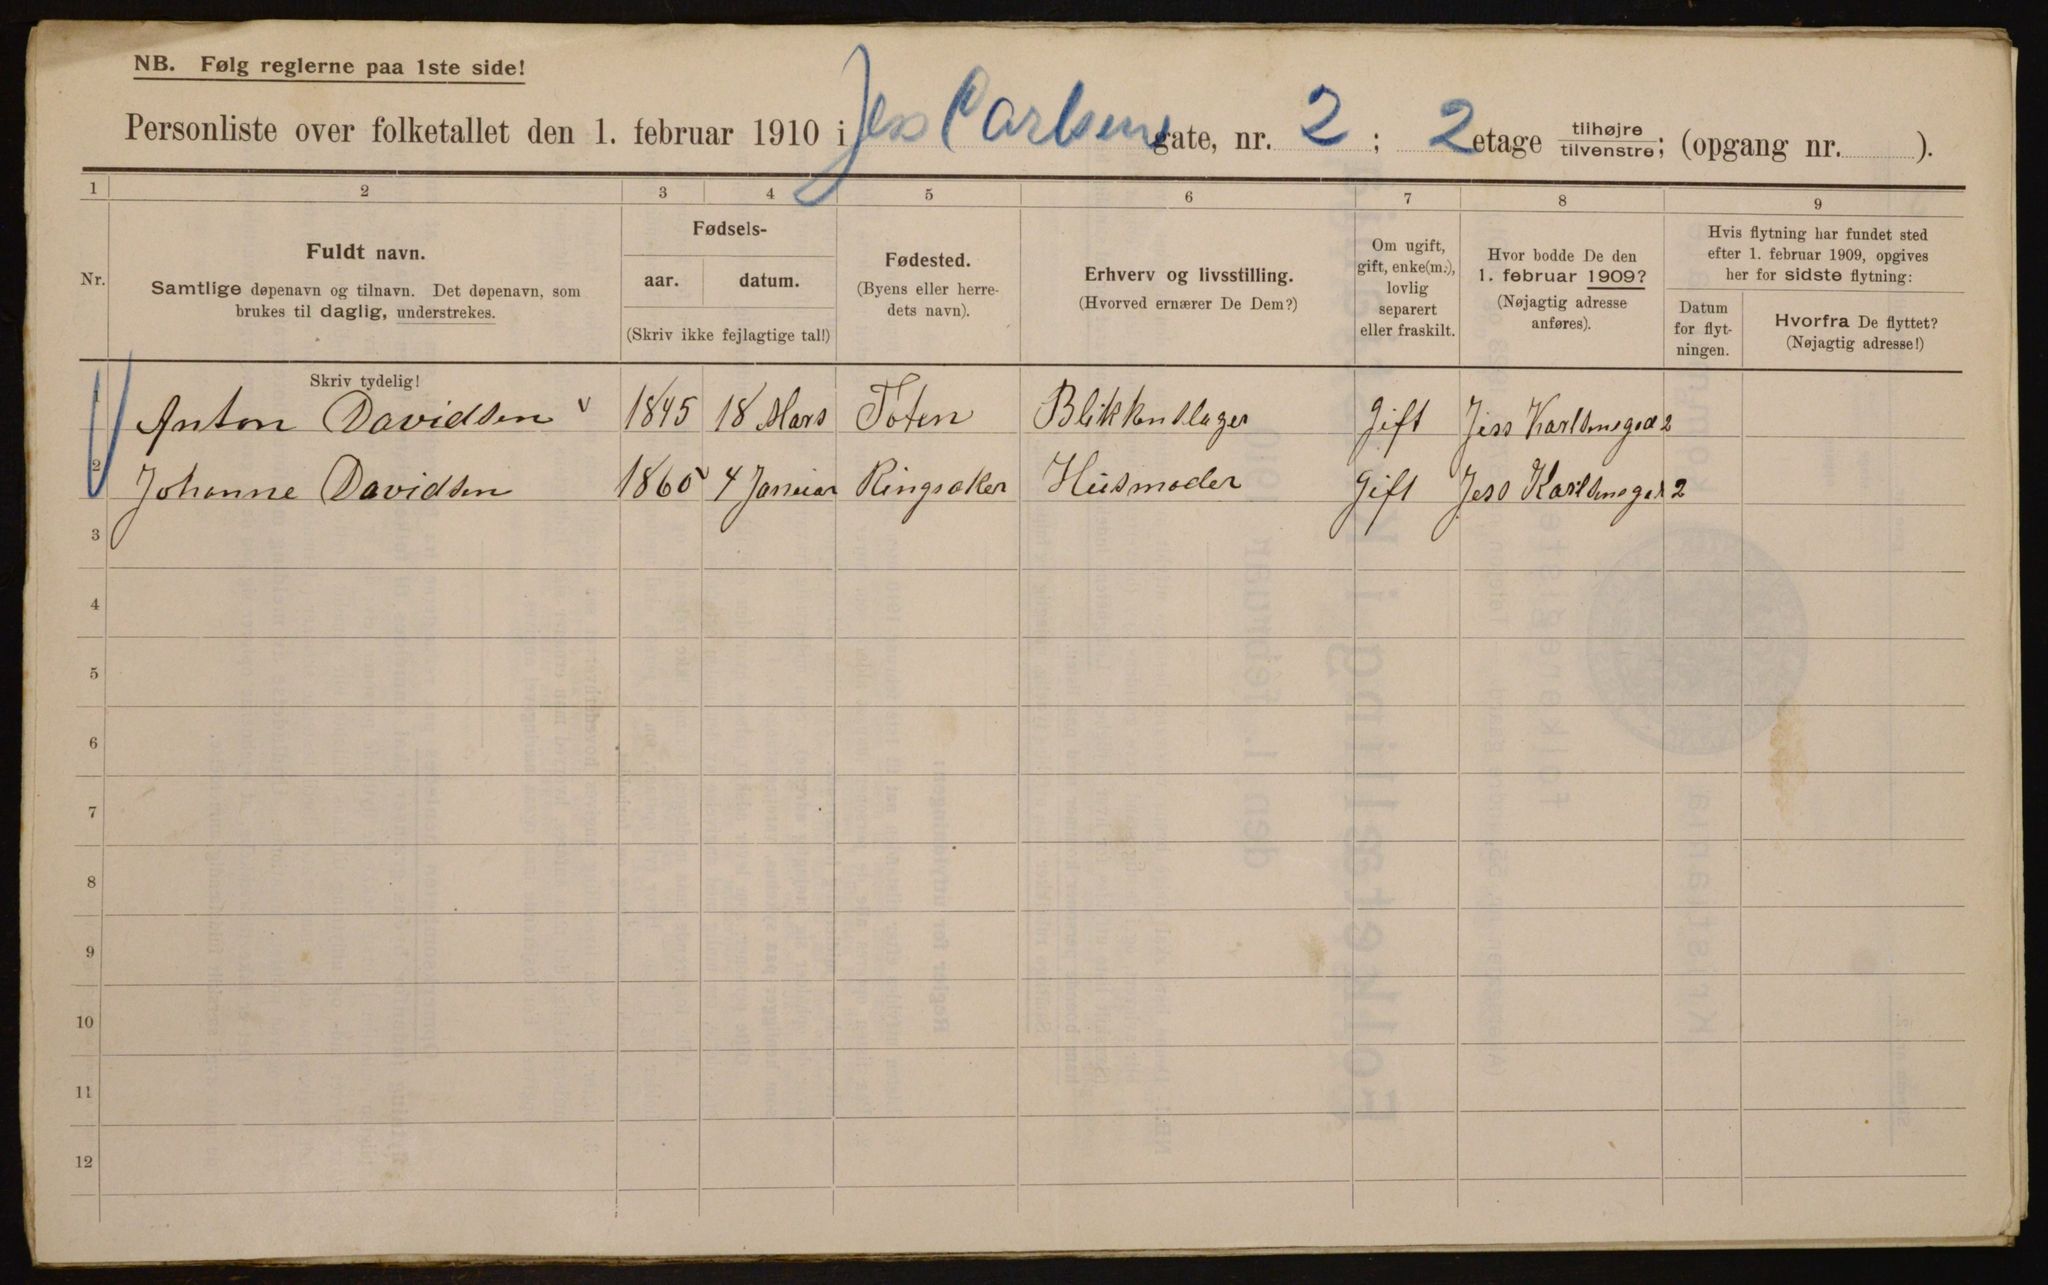 NB. Følg reglerne paa 1ste side!
Personliste over folketallet den 1. februar 1910 i Jess Carlsens gate, nr. 2 ; 2 etage tilhøjre/tilvenstre; (opgang nr. ).
1 2 3 4 5 6 7 8 9
Nr.
Fuldt navn.
Samtlige døpenavn og tilnavn. Det døpenavn, som
brukes til daglig, understrekes.
Fødsels-
aar. datum.
(Skriv ikke fejlagtige tal!)
Fødested.
(Byens eller herre-
dets navn).
Erhverv og livsstilling.
(Hvorved ernærer De Dem?)
Om ugift,
gift, enke(m.),
lovlig
separert
eller fraskilt.
Hvor bodde De den
1. februar 1909?
(Nøjagtig adresse
anføres).
Hvis flytning har fundet sted
efter 1. februar 1909, opgives
her for sidste flytning:
Datum
for flyt-
ningen.
Hvorfra De flyttet?
(Nøjagtig adresse!)
Skriv tydelig!
1 Anton Davidsen 1845 18 Mars Toten Blikkenslager Gift Jess Karlsensgad 2
2 Johanne Davidsen 1860 4 Januar Ringsaker Husmoder Gift Jess Karlsensgad 2
3
4
5
6
7
8
9
10
11
12